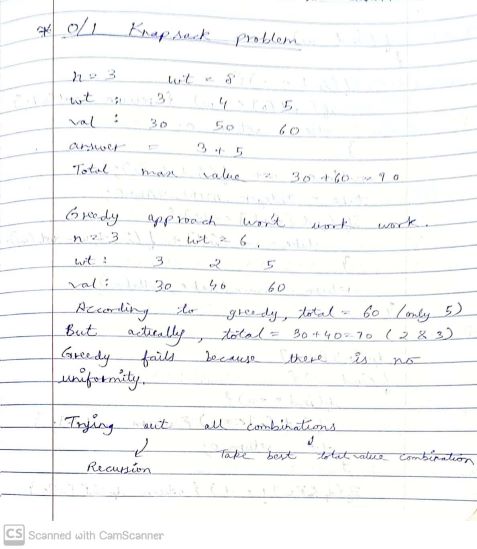 * 0/1 Knapsack problem
n = 3 wt = 8
wt : 3 4 5
val : 30 50 60
answer = 3 + 5
Total max value = 30 + 60 = 90
Greedy approach won't work work.
n = 3 wt = 6.
wt : 3 2 5
val : 30 40 60
According to greedy, total = 60 (only 5)
But actically, total = 30+40=70 (2 & 3)
Greedy fails because there is no
uniformity.
Trying out all combinations
Recursion Take best total value combination
CS Scanned with CamScanner